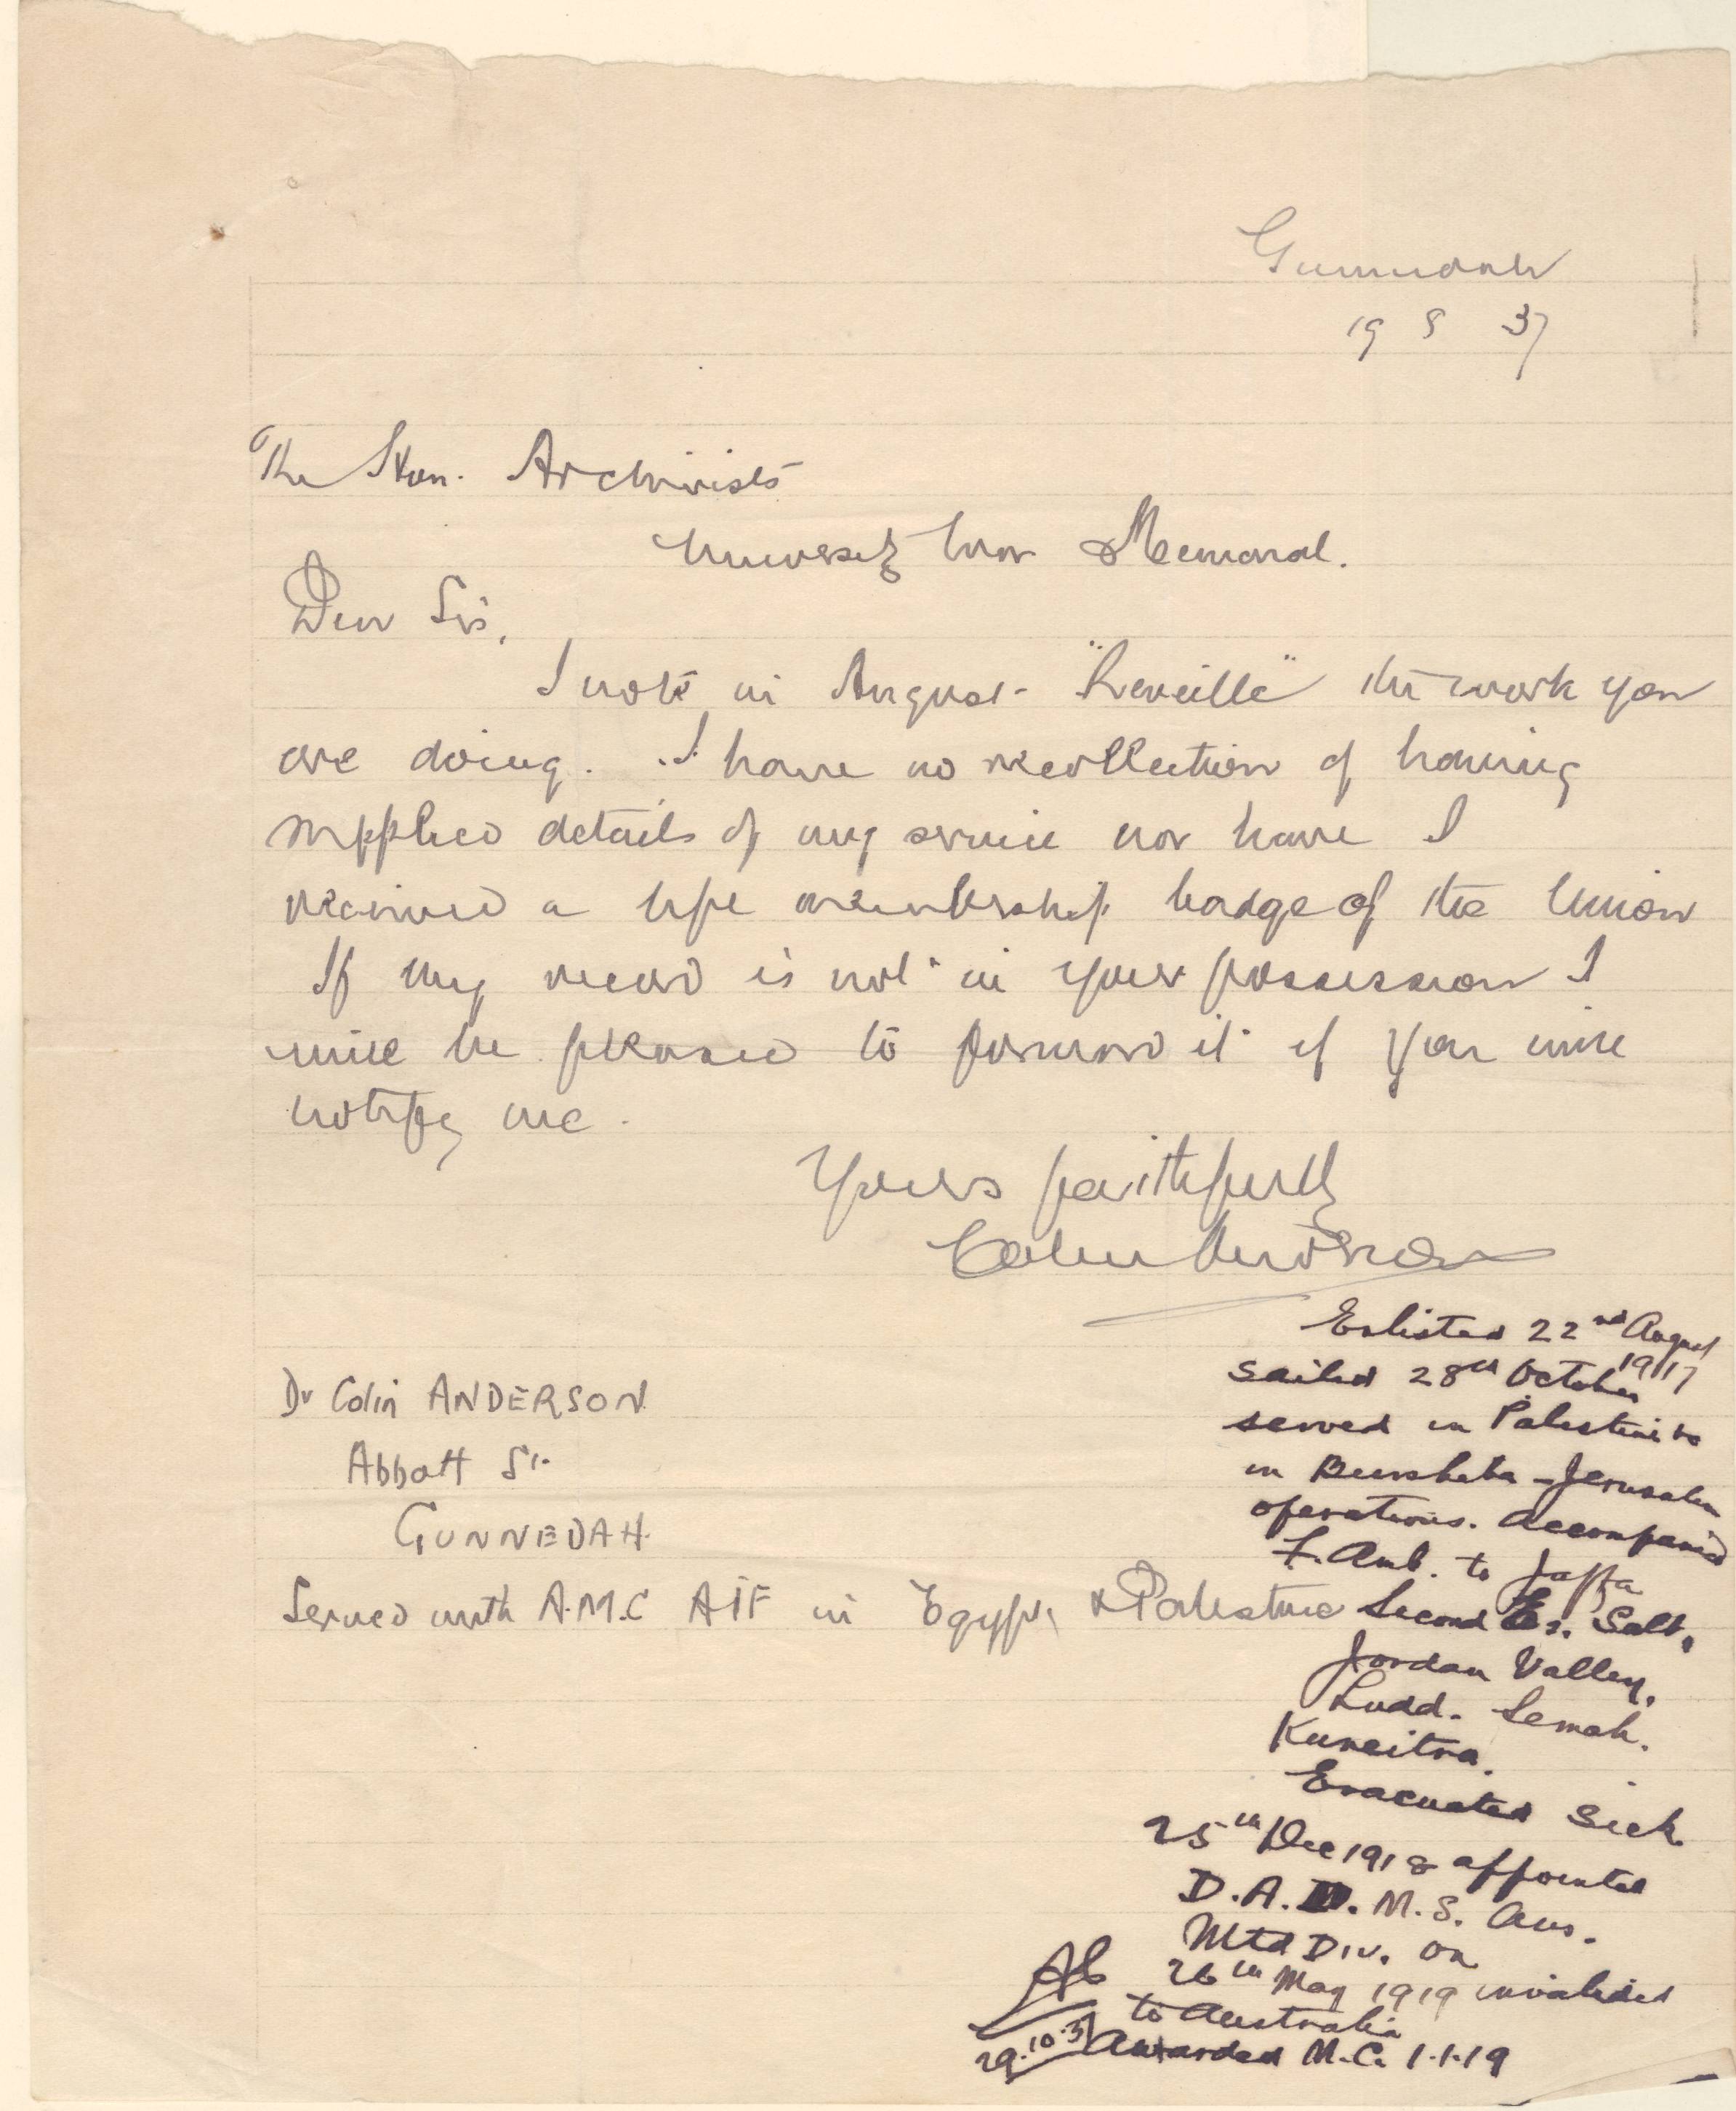 Gunnedah
19 8 37
The Hon. Archivist
University War Memorial.
Dear Sir,
I note in August "Reveille" the work you
are doing. I have no recollection of having
supplied details of my service nor have I
received a life membership badge of the Union
If my record is not in your possession I
will be pleased to forward it if you will
notify me.
Yours faithfully
Colin Anderson
Dr Colin ANDERSON
Abbott St.
GUNNEDAH.
Served with A.M.C AIF in Egypt & Palestine
Enlisted 22nd August
1917
sailed 28th October
served in Palestine
in Beersheba - Jerusalem
operations. Accompanied
F. Amb. to Jaffa
Second Es. Salt,
Jordan Valley,
Ludd. Semak.
Kuneitra.
Evacuated sick
25th Dec 1918 appointed
D.A.D.M.S. Aus.
Mtd Div. on
26th May 1919 invalided
to Australia
Awarded M.C. 1.1.19
29.10.37